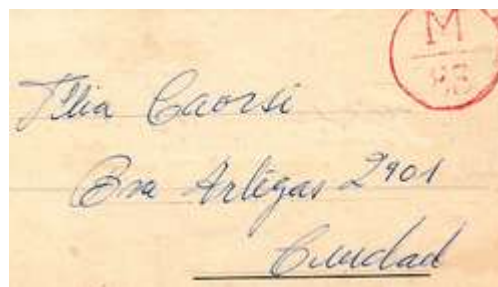 M
Flia Caorsi
Bva Artigas 2901
Ciudad